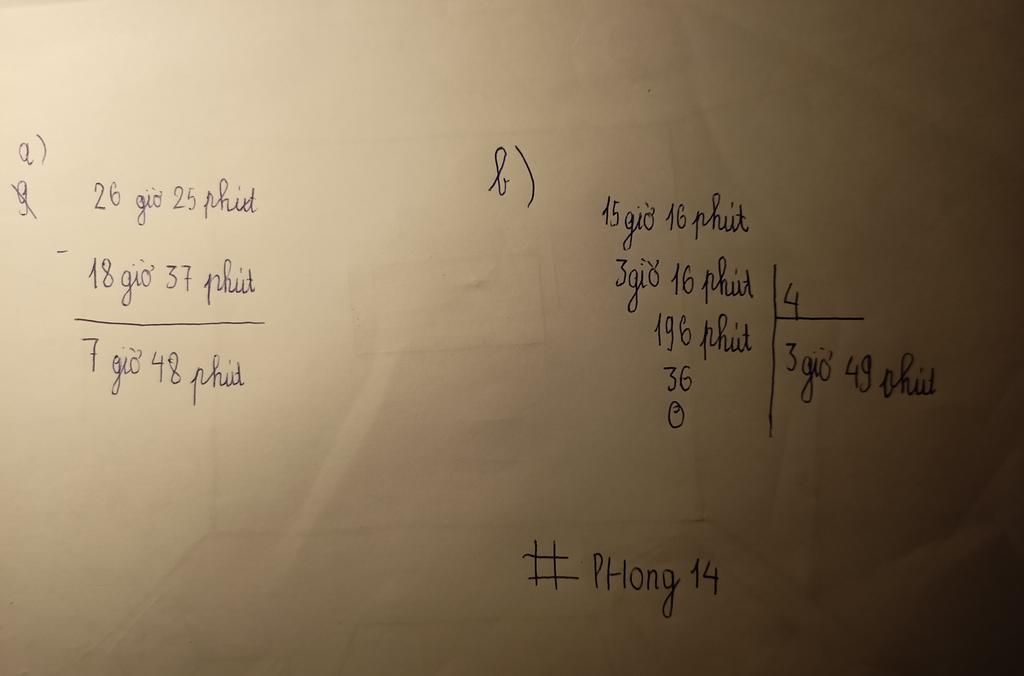 a)
26 giờ 25 phút
-
18 giờ 37 phút
7 giờ 48 phút
b)
15 giờ 16 phút
3 giờ 16 phút 4
196 phút 3 giờ 49 phút
36
0
# PHong 14